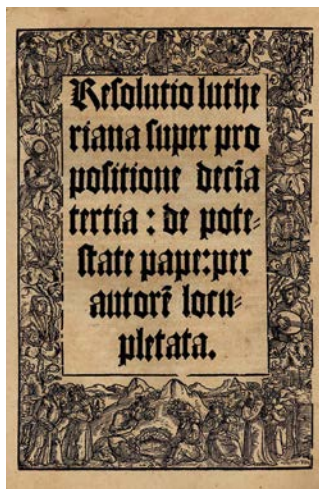 Resolutio luthe
riana super pro
positione decīa
tertia : de pote⸗
state pape:per
autorē locu⸗
pletata.